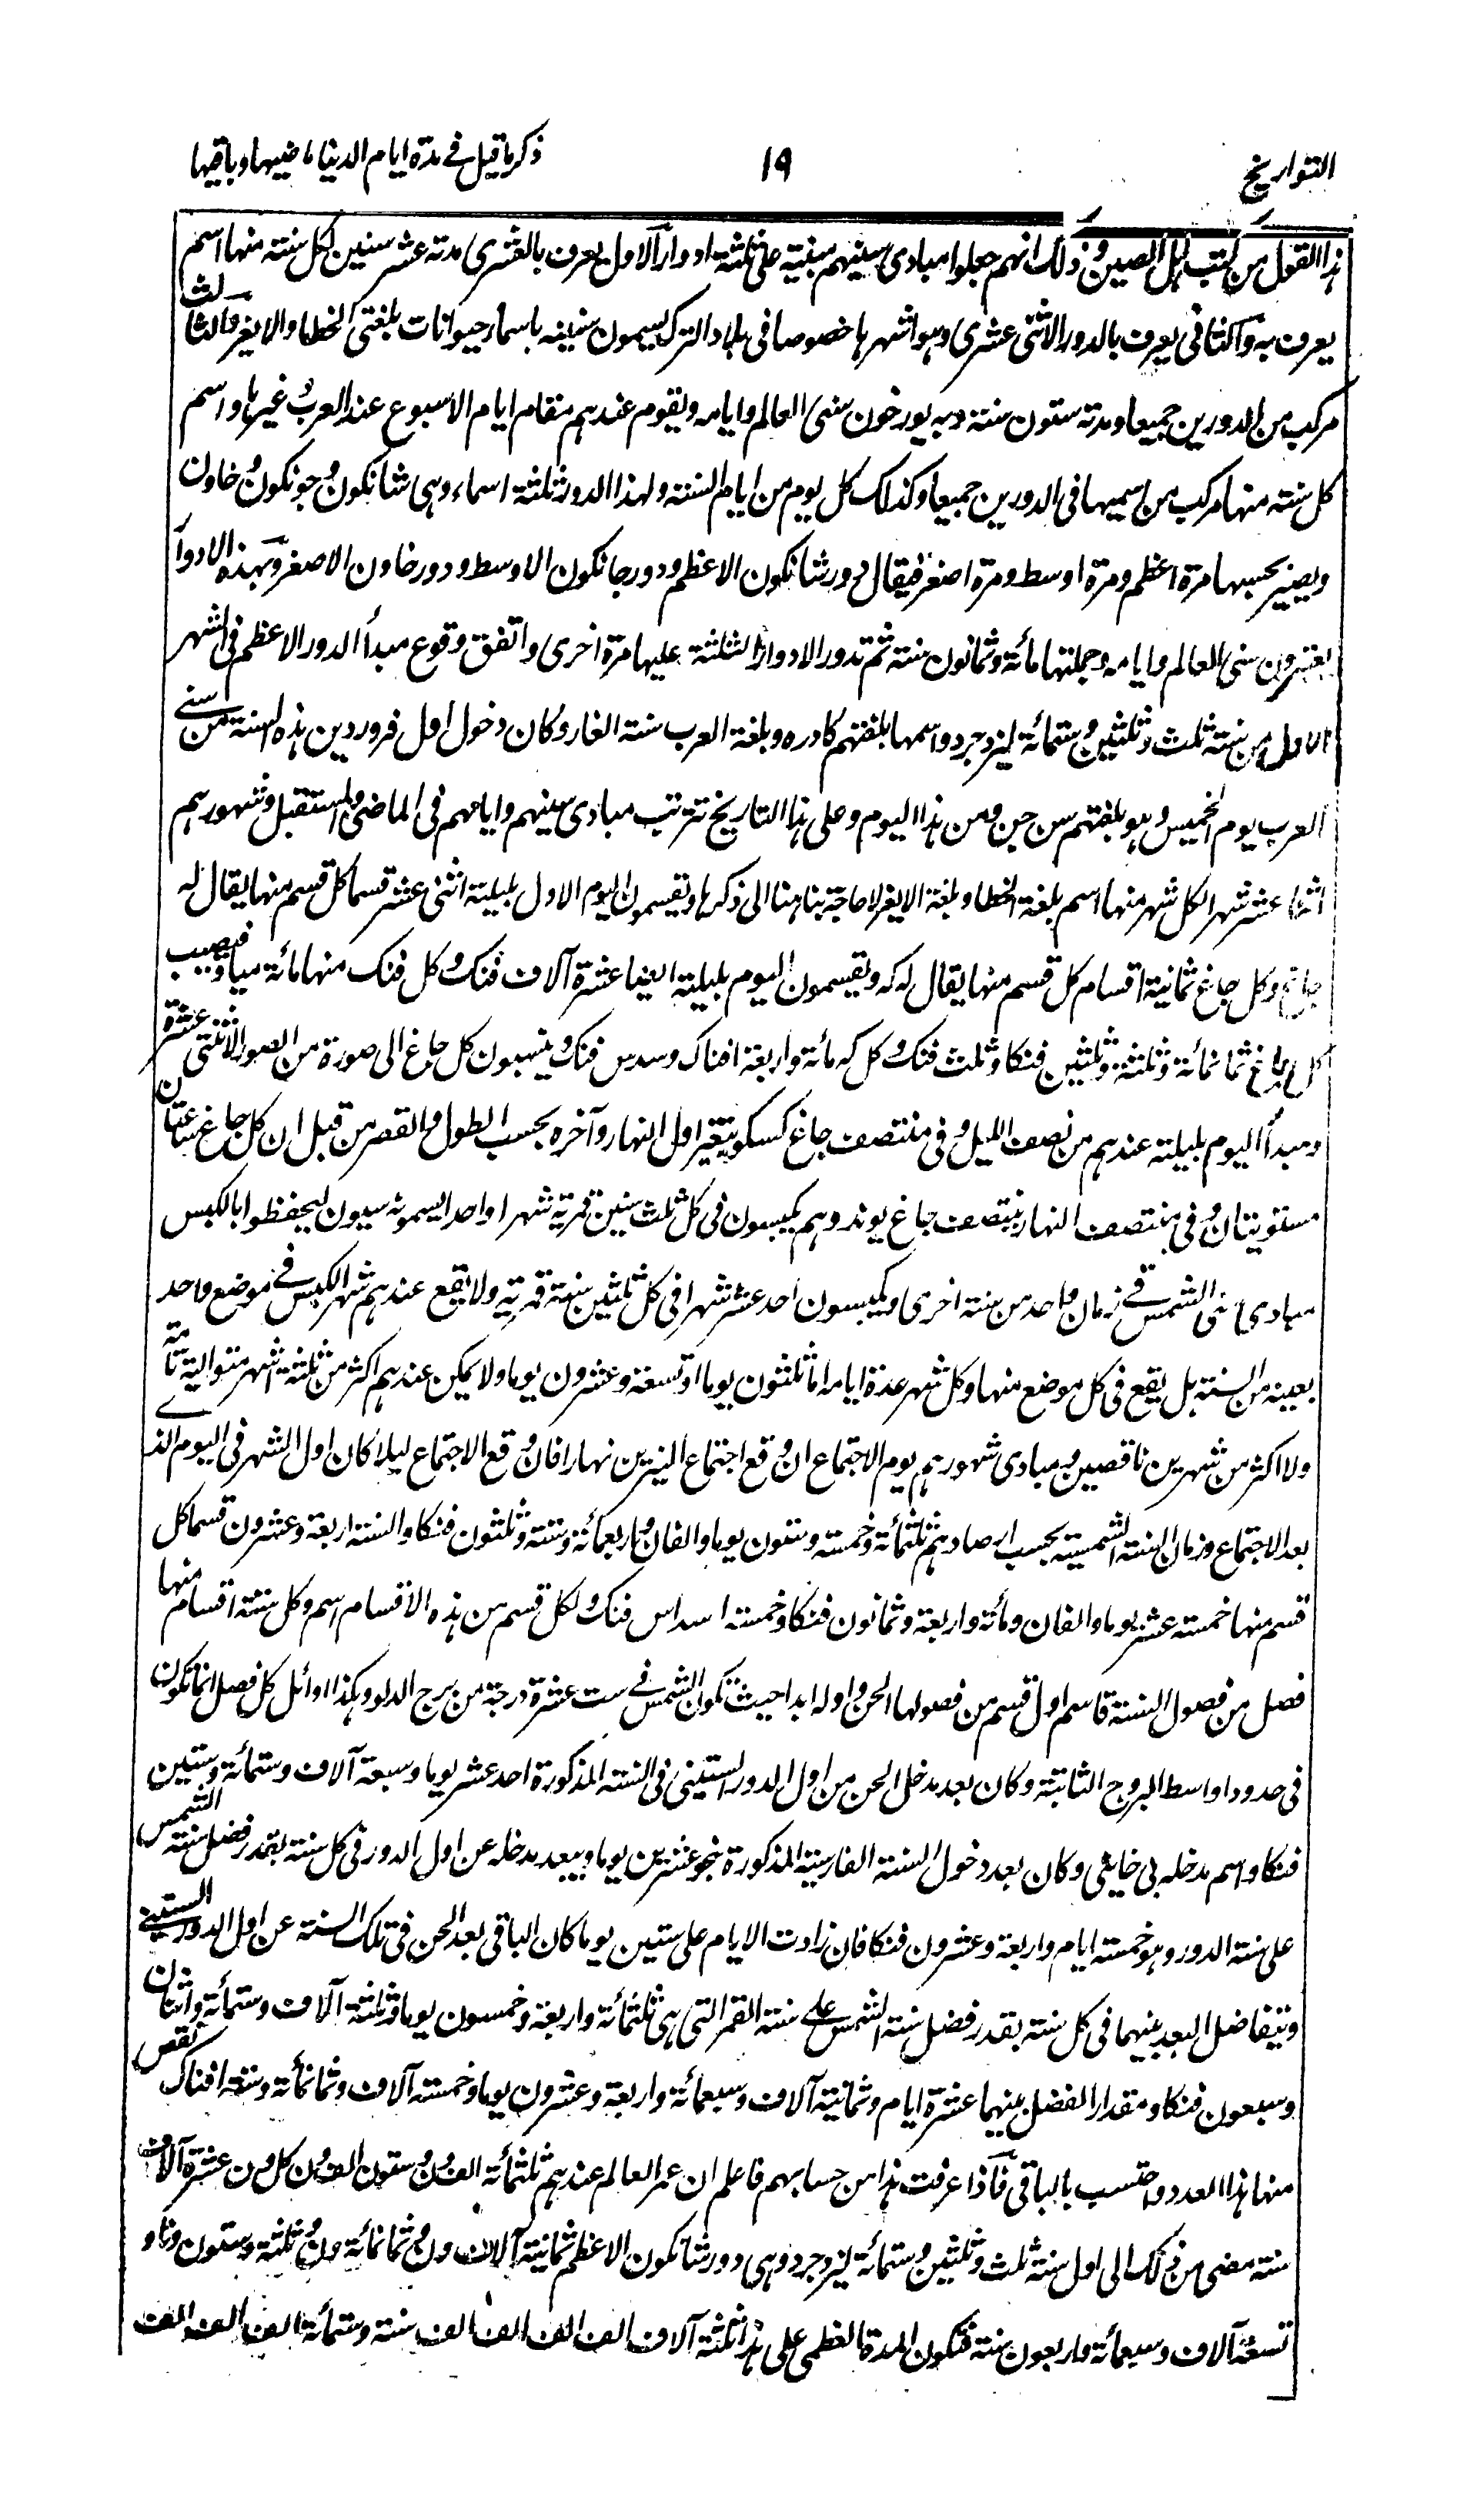 التواريخ
١٩
ذكر ما قيل في مدة ايام الدنيا ماضيها وباقيها
هذا القول من كتب اهل الصين وذلك انهم جعلوا مبادى سنيهم مبنية على ثلثة ادوار الاول يعرف بالعشرى مدته عشر سنين لكل سنة منها اسم
يعرف به والثانى يعرف بالدور الاثنى عشرى وهو اشهرها خصوصا فى بلاد الترك يسمون سنينه باسماء حيوانات بلغتى الخطا والايغر والثالث
مركب من الدورين جميعا ومدته ستون سنة وبه يورخون سنى العالم وايامه ويقوم عندهم مقام ايام الاسبوع عند العرب وغيرها واسم
كل سنة منها مركب من اسميها فى الدورين جميعا وكذلك كل يوم من ايام السنة ولهذا الدور ثلثة اسماء وهى شانكون وجونكون وخاون
ويصير بحسبها مرة اعظم ومرة اوسط ومرة اصغر فيقال دور شانكون الاعظم ودور جانكون الاوسط ودور خاون الاصغر وبهذه الادوار
يعتبرون سنى العالم وايامه وجملتها مائة وثمانون سنة ثم تدور الادوار الثلثة عليها مرة اخرى واتفق وقوع مبدأ الدور الاعظم فى الشهر
الاول من سنة ثلث وثلثين وستمائة ليزدجرد واسمها بلغتهم كادره وبلغة العرب سنة الفار وكان دخول اول فروردين هذه السنة من سنے
العرب يوم الخميس وهو بلغتهم سن جن ومن هذا اليوم وعلى هذا التاريخ تترتب مبادى سنيهم وايامهم فى الماضى والمستقبل وشهورهم
اثنا عشر شهرا لكل شهر منها اسم بلغة الخطا وبلغة الايغر لا حاجة بنا هنا الى ذكرها ويقسمون اليوم الاول بليلته اثنى عشر قسما كل قسم منها يقال له
جاغ وكل جاغ ثمانية اقسام كل قسم منها يقال له كه ويقسمون اليوم بليلته ايضا عشرة آلاف فنك وكل فنك منها مائة مياو فيصيب
كل جاغ ثمانمائة وثلثة وثلثين فنكا وثلث فنك وكل كه مائة واربعة افناك وسدس فنك وينسبون كل جاغ الى صورة من الصور الاثنتى عشرة
ومبدأ اليوم بليلته عندهم من نصف الليل وفى منتصف جاغ كسكو يتغير اول النهار وآخره بحسب الطول والقصر من قبل ان كل جاغ ساعتان
مستويتان وفى منتصف النهار ينتصف جاغ يوند وهم يكبسون فى كل ثلث سنين قمرية شهرا واحدا يسمونه سيون ليحفظوا بالكبس
مبادى سنى الشمس فے زمان واحد من سنة اخرى ويكبسون احد عشر شهرا فى كل ثلثين سنة قمرية ولا يقع عندهم شهر الكبس فے موضع واحد
بعينه من السنة بل يقع فى كل موضع منها وكل شهر عدة ايامه اما ثلثون يوما او تسعة وعشرون يوما ولا يمكن عندهم اكثر من ثلثة اشهر متوالية تامة
ولا اكثر من شهرين ناقصين ومبادى شهورهم يوم الاجتماع ان وقع اجتماع النيرين نهارا فان وقع الاجتماع ليلا كان اول الشهر فى اليوم الذے
بعد الاجتماع وزمان السنة الشمسية بحسب ارصادهم ثلثمائة وخمسة وستون يوما والفان واربعمائة وستة وثلثون فنكا والسنة اربعة وعشرون قسما كل
قسم منها خمسة عشر يوما والفان ومائة واربعة وثمانون فنكا وخمسة اسداس فنك ولكل قسم من هذه الاقسام اسم وكل ستة اقسام منها
فصل من فصول السنة فاسم اول قسم من فصولها الحن واوله ابدا حيث تكون الشمس فے ست عشرة درجة من برج الدلو وهكذا اوائل كل فصل انما تكون
فى حدود اواسط البروج الثابتة وكان بعد مدخل الحن من اول الدور الستينى فى السنة المذكورة احد عشر يوما وسبعة آلاف وستمائة وستين
فنكا واسم مدخله بى خايغى وكان بعد دخول السنة الفارسية المذكورة بنحو عشرين يوما ويبعد مدخله عن اول الدور فى كل سنة بقدر فضل سنة الشمس
على سنة الدور وهو خمسة ايام واربعة وعشرون فنكا فان زادت الايام على ستين يوما كان الباقى بعد الحن فى تلك السنة عن اول الدور الستينے
ويتفاضل البعد بينهما فى كل سنة بقدر فضل سنة الشمس علے سنة القمر التى هى ثلثمائة واربعة وخمسون يوما وثلثة آلاف وستمائة واثنان
وسبعون فنكا ومقدار الفضل بينهما عشرة ايام وثمانية آلاف وسبعمائة واربعة وعشرون يوما وخمسة آلاف وثمانمائة وستة افناك نقص
منها هذا العدد واحتسب بالباقى فاذا عرفت هذا من حسابهم فاعلم ان عمر العالم عندهم ثلثمائة الف ون وستون الف ون كل ون عشرة آلاف
سنة مضى من ذلك الى اول سنة ثلث وثلثين وستمائة ليزدجرد وهى دور شانكون الاعظم ثمانية آلاف ون وثمانمائة ون وثلثة وستون ونا و
تسعة آلاف وسبعمائة واربعون سنة فتكون المدة العظمى على هذا ثلثة آلاف الف الف الف الف سنة وستمائة الف الف الف